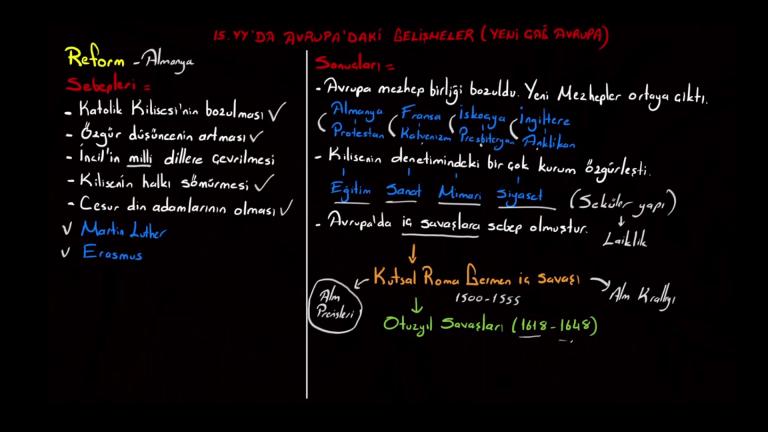 15. YY'DA AVRUPA'DAKİ GELİŞMELER (YENİ ÇAĞ AVRUPA)
Reform - Almanya
Sebepleri =
- Katolik Kilisesi'nin bozulması ✓
- Özgür düşüncenin artması ✓
- İncil'in milli dillere çevrilmesi
- Kilisenin halkı sömürmesi ✓
- Cesur din adamlarının olması ✓
✓ Martin Luther
✓ Erasmus
Sonuçları =
- Avrupa mezhep birliği bozuldu. Yeni Mezhepler ortaya çıktı.
Almanya Fransa İskoçya İngiltere
Protestan Kalvenizm Presbiteryan Anklikan
- Kilisenin denetimindeki bir çok kurum özgürleşti.
Eğitim Sanat Mimari Siyaset (Seküler yapı)
Laiklik
- Avrupa'da iç savaşlara sebep olmuştur.
Kutsal Roma Germen iç savaşı
1500-1555
Alm Prensleri
Alm Krallığı
Otuzyıl Savaşları (1618-1648)